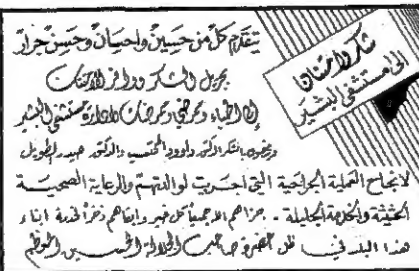 شكر وامتنان
الى مستشفى البشير
يتقدم كل من حسين واحسان وحسن جرار
بجزيل الشكر ووافر الامتنان
الى اطباء وممرضي وممرضات وادارة مستشفى البشير
ويخصون بالشكر الدكتور داوود والدكتور
لانجاح العملية الجراحية التي اجريت لوالدتهم والرعاية الصحية
الحثيثة والخدمة الجليلة . جزاهم الله جميعا كل خير وابقاهم ذخرا لخدمة ابناء
هذا البلد في ظل حضرة صاحب الجلالة الحسين المعظم